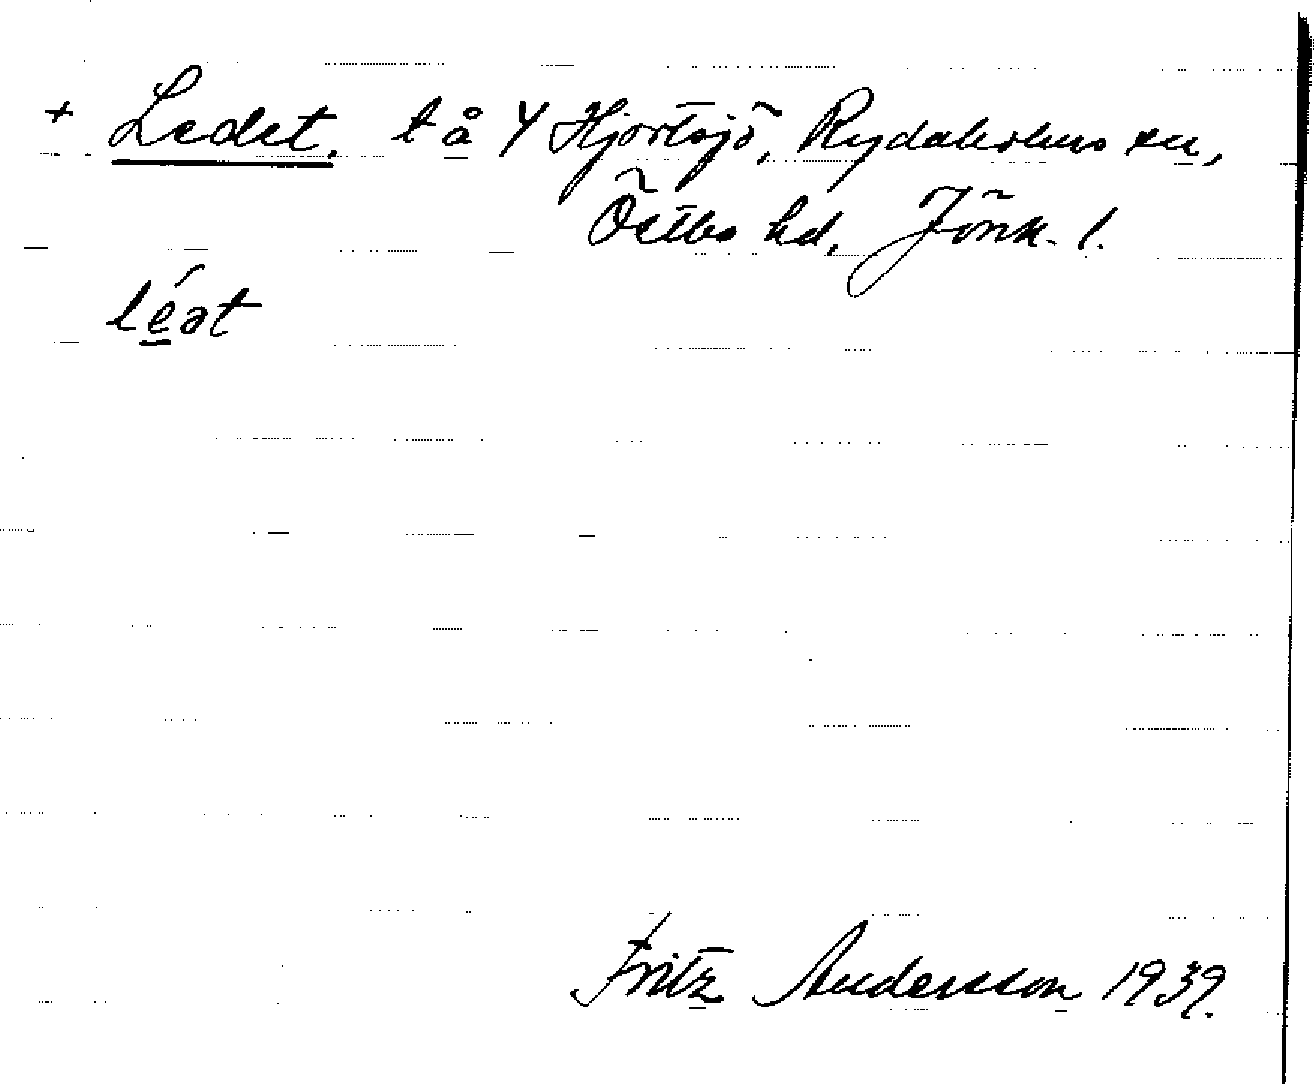 + Ledet. t å Y Hjortsjö, Rydaholms sn,
Östbo hd, Jönk. l.
lé̱ət
Fritz Andersson 1939.